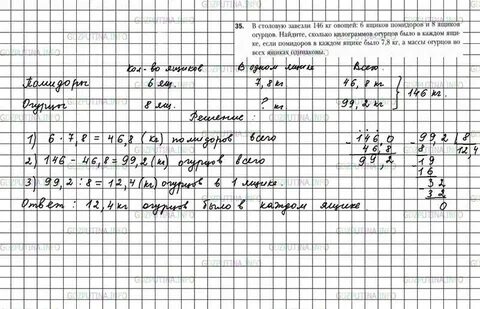 35. В столовую завезли 146 кг овощей: 6 ящиков помидоров и 8 ящиков
огурцов. Найдите, сколько килограммов огурцов было в каждом ящи-
ке, если помидоров в каждом ящике было 7,8 кг, а массы огурцов во
всех ящиках одинаковы.
Кол-во ящиков В одном ящике Всего
Помидоры 6 ящ. 7,8 кг 46,8 кг
146 кг.
Огурцы 8 ящ. ? кг 99,2 кг
Решение:
1) 6 · 7,8 = 46,8 (кг) помидоров всего
2) 146 - 46,8 = 99,2 (кг) огурцов всего
3) 99,2 : 8 = 12,4 (кг) огурцов в 1 ящике.
Ответ: 12,4 кг огурцов было в каждом ящике.
- 146,0
46,8
99,2
- 99,2 | 8
8 12,4
- 19
16
- 32
32
0
GDZPUTINA.INFO